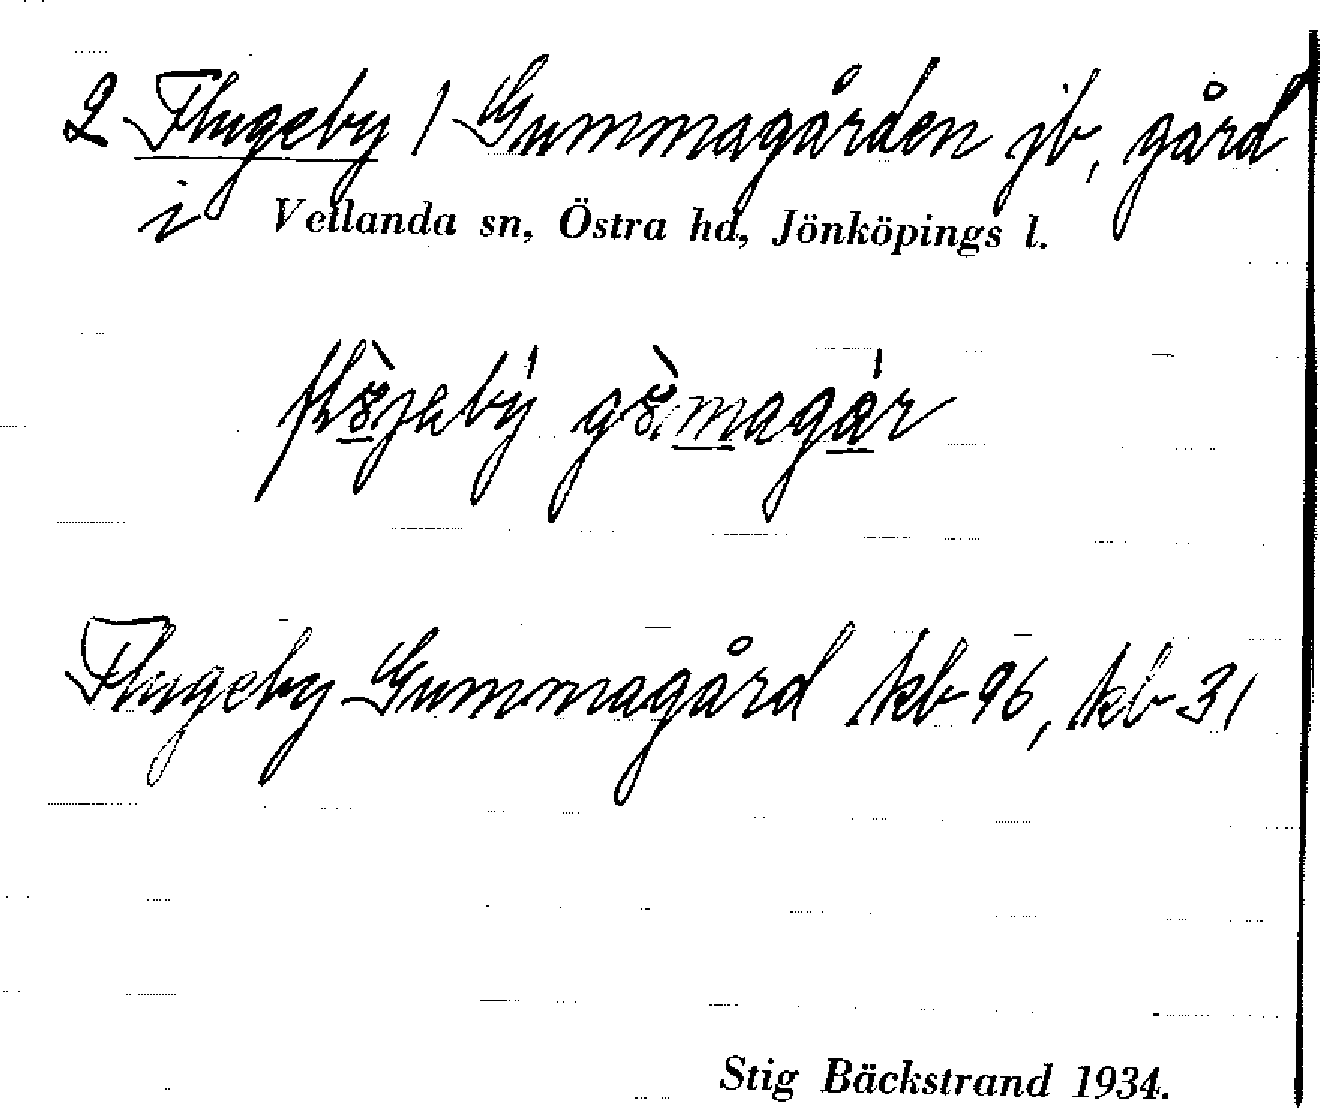 2 Flugeby / Gummagården jb, gård
i Vetlanda sn, Östra hd, Jönköpings l.
Flugeby Gummagård kb 96, kb 31
Stig Bäckstrand 1934.